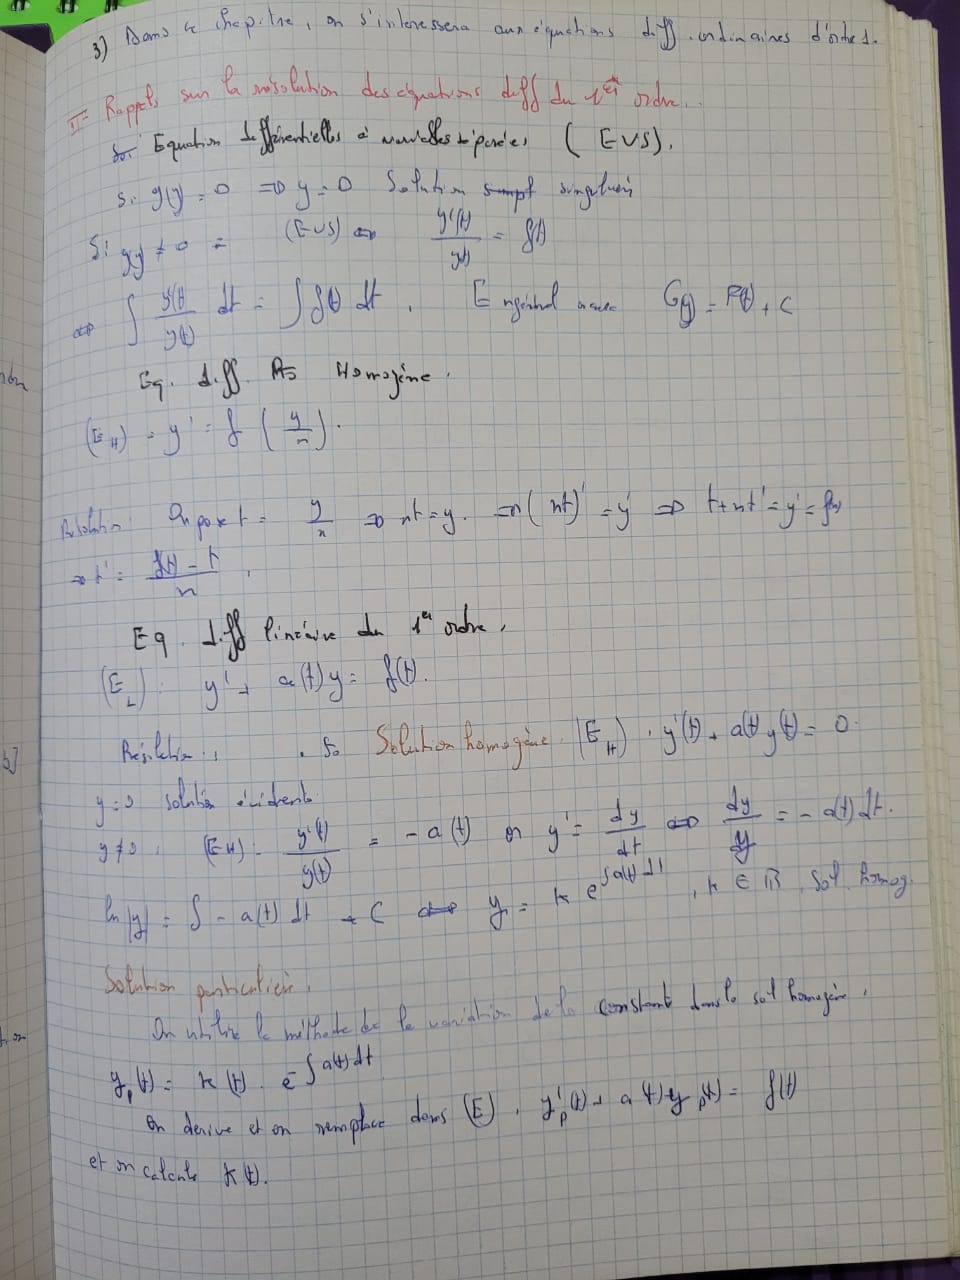 3) Dans ce chapitre, on s'interessera aux équations diff. ordinaires d'ordre 1.
II- Rappels sur la résolution des équations diff du 1er ordre.
Equation différentielles à variables séparées (EVS).
Si g(y) = 0 => y = 0 Solution singulière
Si g(y) ≠ 0 = (EVS) <=> y'(t)/y(t) = f(t)
<=> ∫ y'(t)/y(t) dt = ∫ f(t) dt. En général G(y) = F(t) + C
Eq. diff. Homogène.
(E_H) = y' = f(y/x).
Résolution: On pose t = y/x => xt = y. => (xt)' = y' => t + xt' = y' = f(t)
=> t' = (f(t) - t)/x.
Eq. diff linéaire du 1er ordre.
(E_L): y' + a(t) y = f(t).
Résolution: Solution homogène (E_H): y'(t) + a(t) y(t) = 0.
y = 0 solution évidente
y ≠ 0, (E_H): y'(t)/y(t) = - a(t) or y' = dy/dt <=> dy/y = - a(t) dt.
ln|y| = ∫ - a(t) dt + C <=> y = k e^∫a(t) dt, k ∈ ℝ, sol. homog.
Solution particulière.
On utilise la méthode de la variation de la constant dans la sol homogène.
y_p(t) = k(t). e^-∫a(t) dt
On derive et on remplace dans (E). y'_p(t) + a(t) y_p(t) = f(t)
et on calcule k(t).